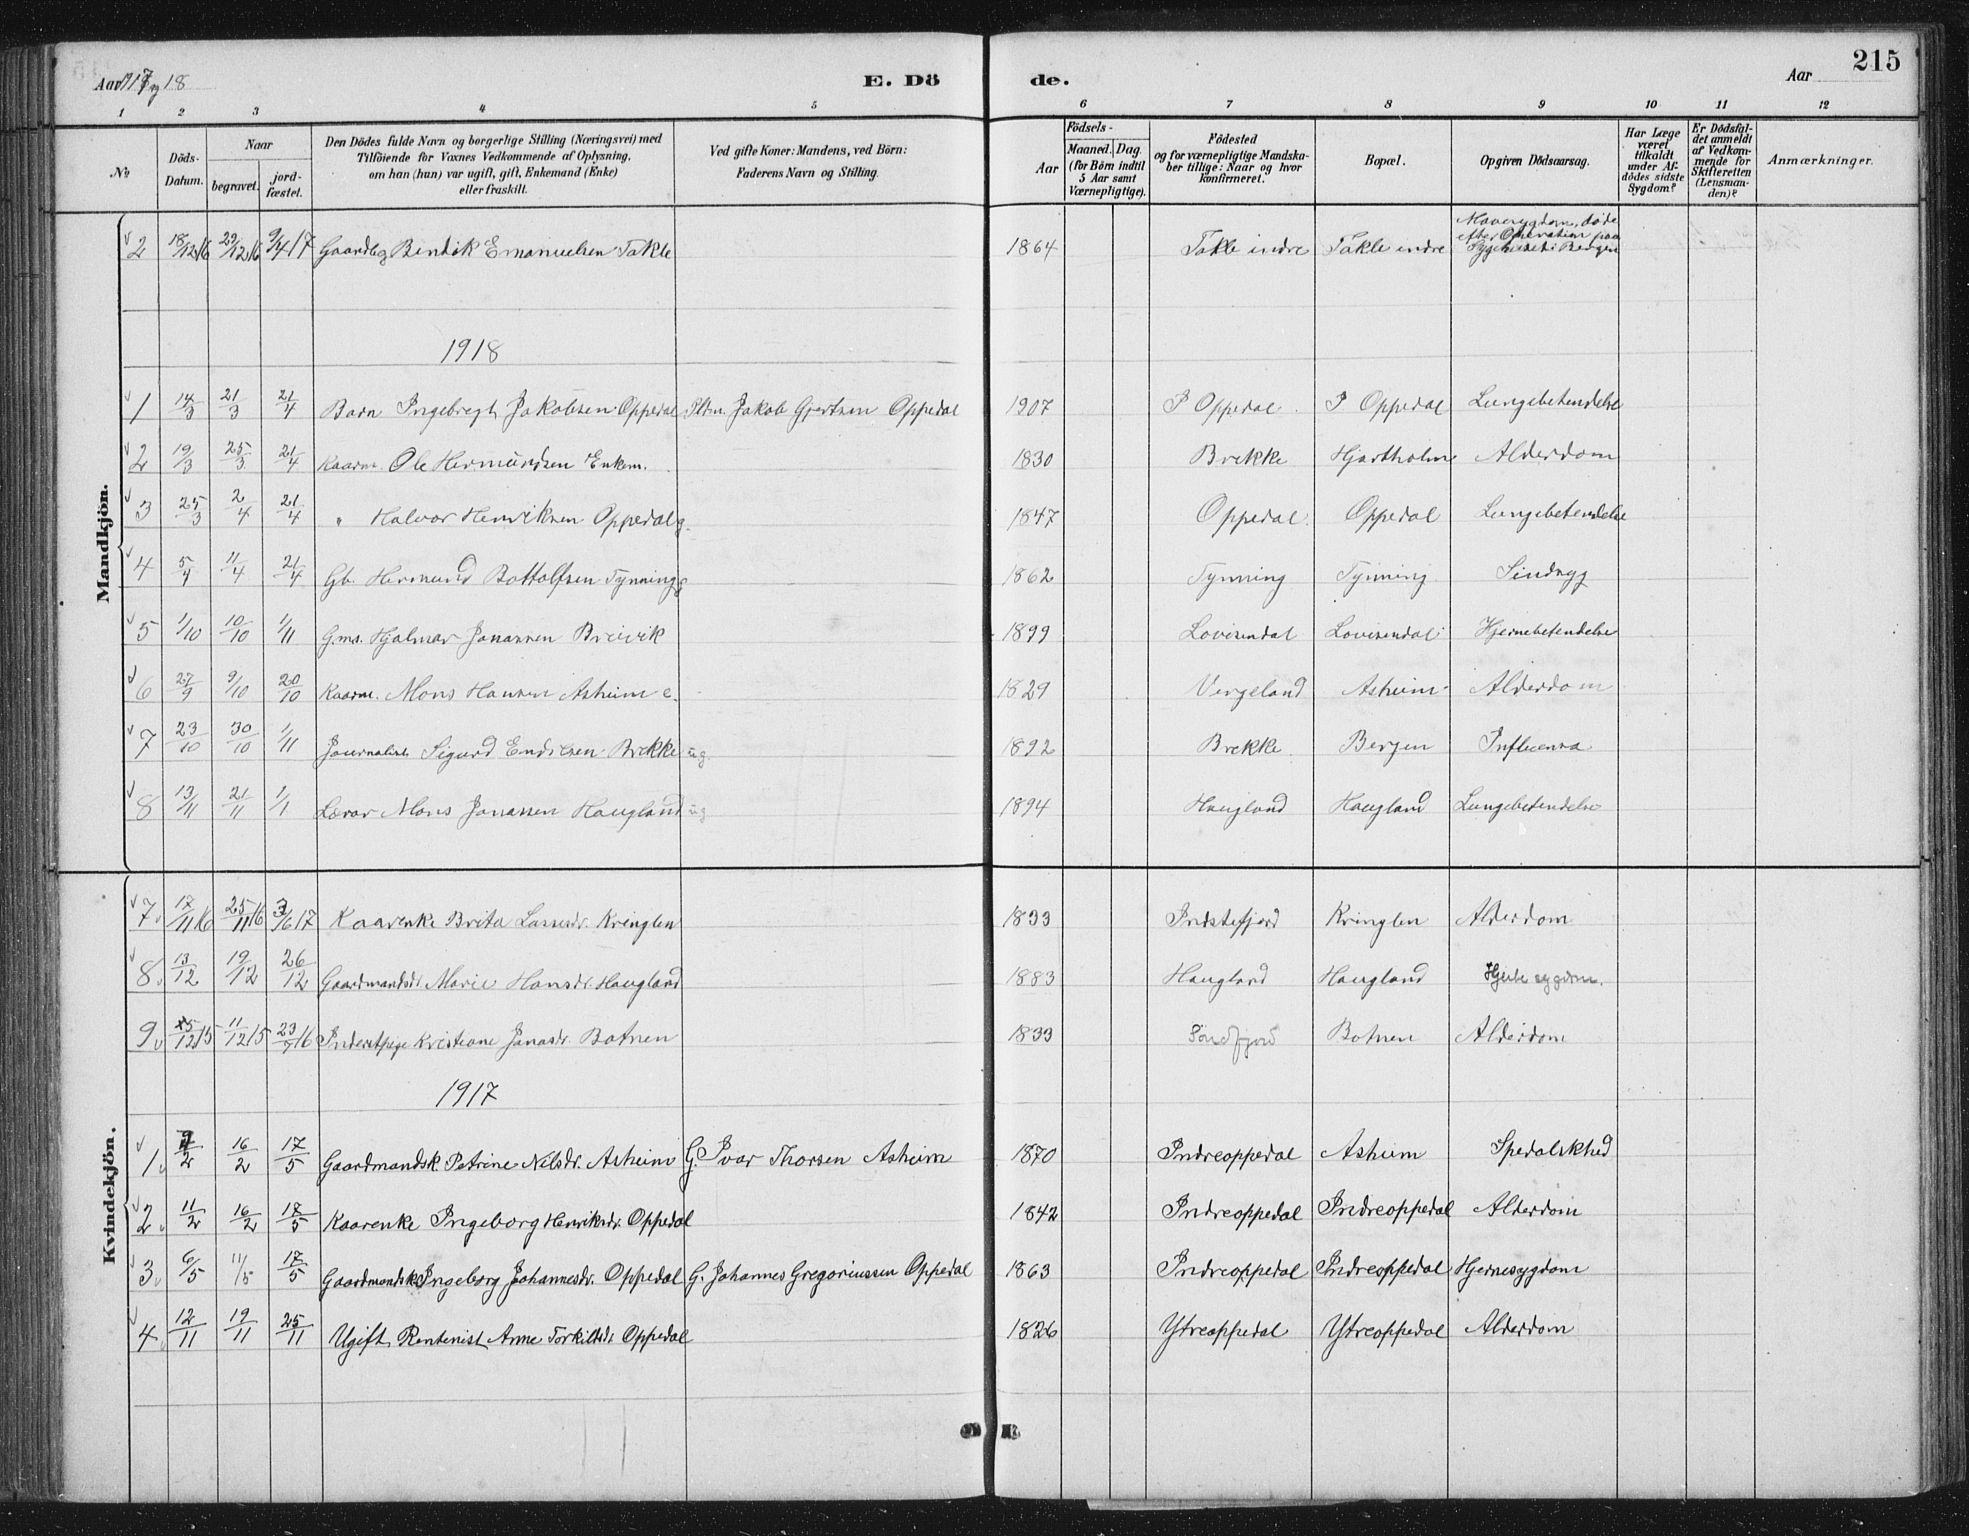 Aar 1917 og 18
E. Dö
de.
Aar
215
1 2 3 4 5 6 7 8 9 10 11 12
No
Döds-Datum.
Naar
begravet.
jord-fæstet.
Den Dödes fulde Navn og borgerlige Stilling (Næringsvei) med
Tilföiende for Voxnes Vedkommende af Oplysning,
om han (hun) var ugift, gift, Enkemand (Enke)
eller fraskilt.
Ved gifte Koner: Mandens, ved Börn:
Faderens Navn og Stilling.
Födsels-
Aar
Maaned. Dag.
(for Börn indtil
5 Aar samt
Værnepligtige).
Födested
og for værnepligtige Mandska-
ber tillige: Naar og hvor
konfirmeret.
Bopæl.
Opgiven Dödsaarsag.
Har Læge
været
tilkaldt
under Af-
dödes sidste
Sygdom?
Er Dödsfal-
det anmeldt
af Vedkom-
mende for
Skifteretten
(Lensman-
den)?
Anmærkninger.
Mandkjön.
2 18/12 16 29/12 16 9/4 17 Gaardbg Bendik Emanuelsen Takle 1864 Takle indre Takle indre Mavesygdom, døde efter Operation paa Sygehuset i Bergen
1918
1 14/3 21/3 21/4 Barn Ingebregt Jakobsen Oppedal Jakob Gjertsen Oppedal 1907 I Oppedal I Oppedal Lungebetendelse
2 19/3 25/3 21/4 Kaarm. Ole Hermundsen Enkem. 1830 Brekke Hjartholm Alderdom
3 25/3 2/4 21/4 " Halvor Henriksen Oppedal g. 1847 Oppedal Oppedal Lungebetendelse
4 5/4 11/4 21/4 Gb. Hermund Bottolfsen Tynning g 1862 Tynning Tynning Sindsyg
5 1/10 10/10 1/11 G.ms. Hjalmar Jonassen Breivik 1899 Lovisendal Lovisendal Hjernebetendelse
6 27/9 9/10 20/10 Kaarm. Mons Hansen Asheim e. 1829 Vergeland Asheim Alderdom
7 23/10 30/10 1/11 Journalist Sigurd Endresen Brekke ug. 1892 Brekke Bergen Influensa
8 13/11 21/11 1/1 Lærar Mons Jonassen Haugland ug 1894 Haugland Haugland Lungebetendelse
Kvindekjön.
7 17/11 16 25/11 16 3/6 17 Kaarenke Brita Lassesdr. Kringlen 1833 Indstefjord Kringlen Alderdom
8 13/12 19/12 26/12 Gaardmandsdr Marie Hansdr. Haugland 1883 Haugland Haugland Hjertesygdom.
9 5/12 15 11/12 15 23/7 16 Inderstpige Kristiane Jonasdr. Botnen 1833 Søndfjord Botnen Alderdom
1917
1 9/2 16/2 17/5 Gaardmandsk. Petrine Nilsdr. Asheim G. Ivar Thorsen Asheim 1870 Indreoppedal Asheim Spedalskhed
2 11/2 16/2 17/5 Kaarenke Ingeborg Henriksdr. Oppedal 1842 Indreoppedal Indreoppedal Alderdom
3 6/5 11/5 17/5 Gaardmandsk Ingeborg Johannesdr. Oppedal G. Johannes Gregoriussen Oppedal 1863 Indreoppedal Indreoppedal Hjernesygdom
4 12/11 19/11 25/11 Ugift Rentenist Anne Torkilsdr Oppedal 1826 Ytreoppedal Ytreoppedal Alderdom